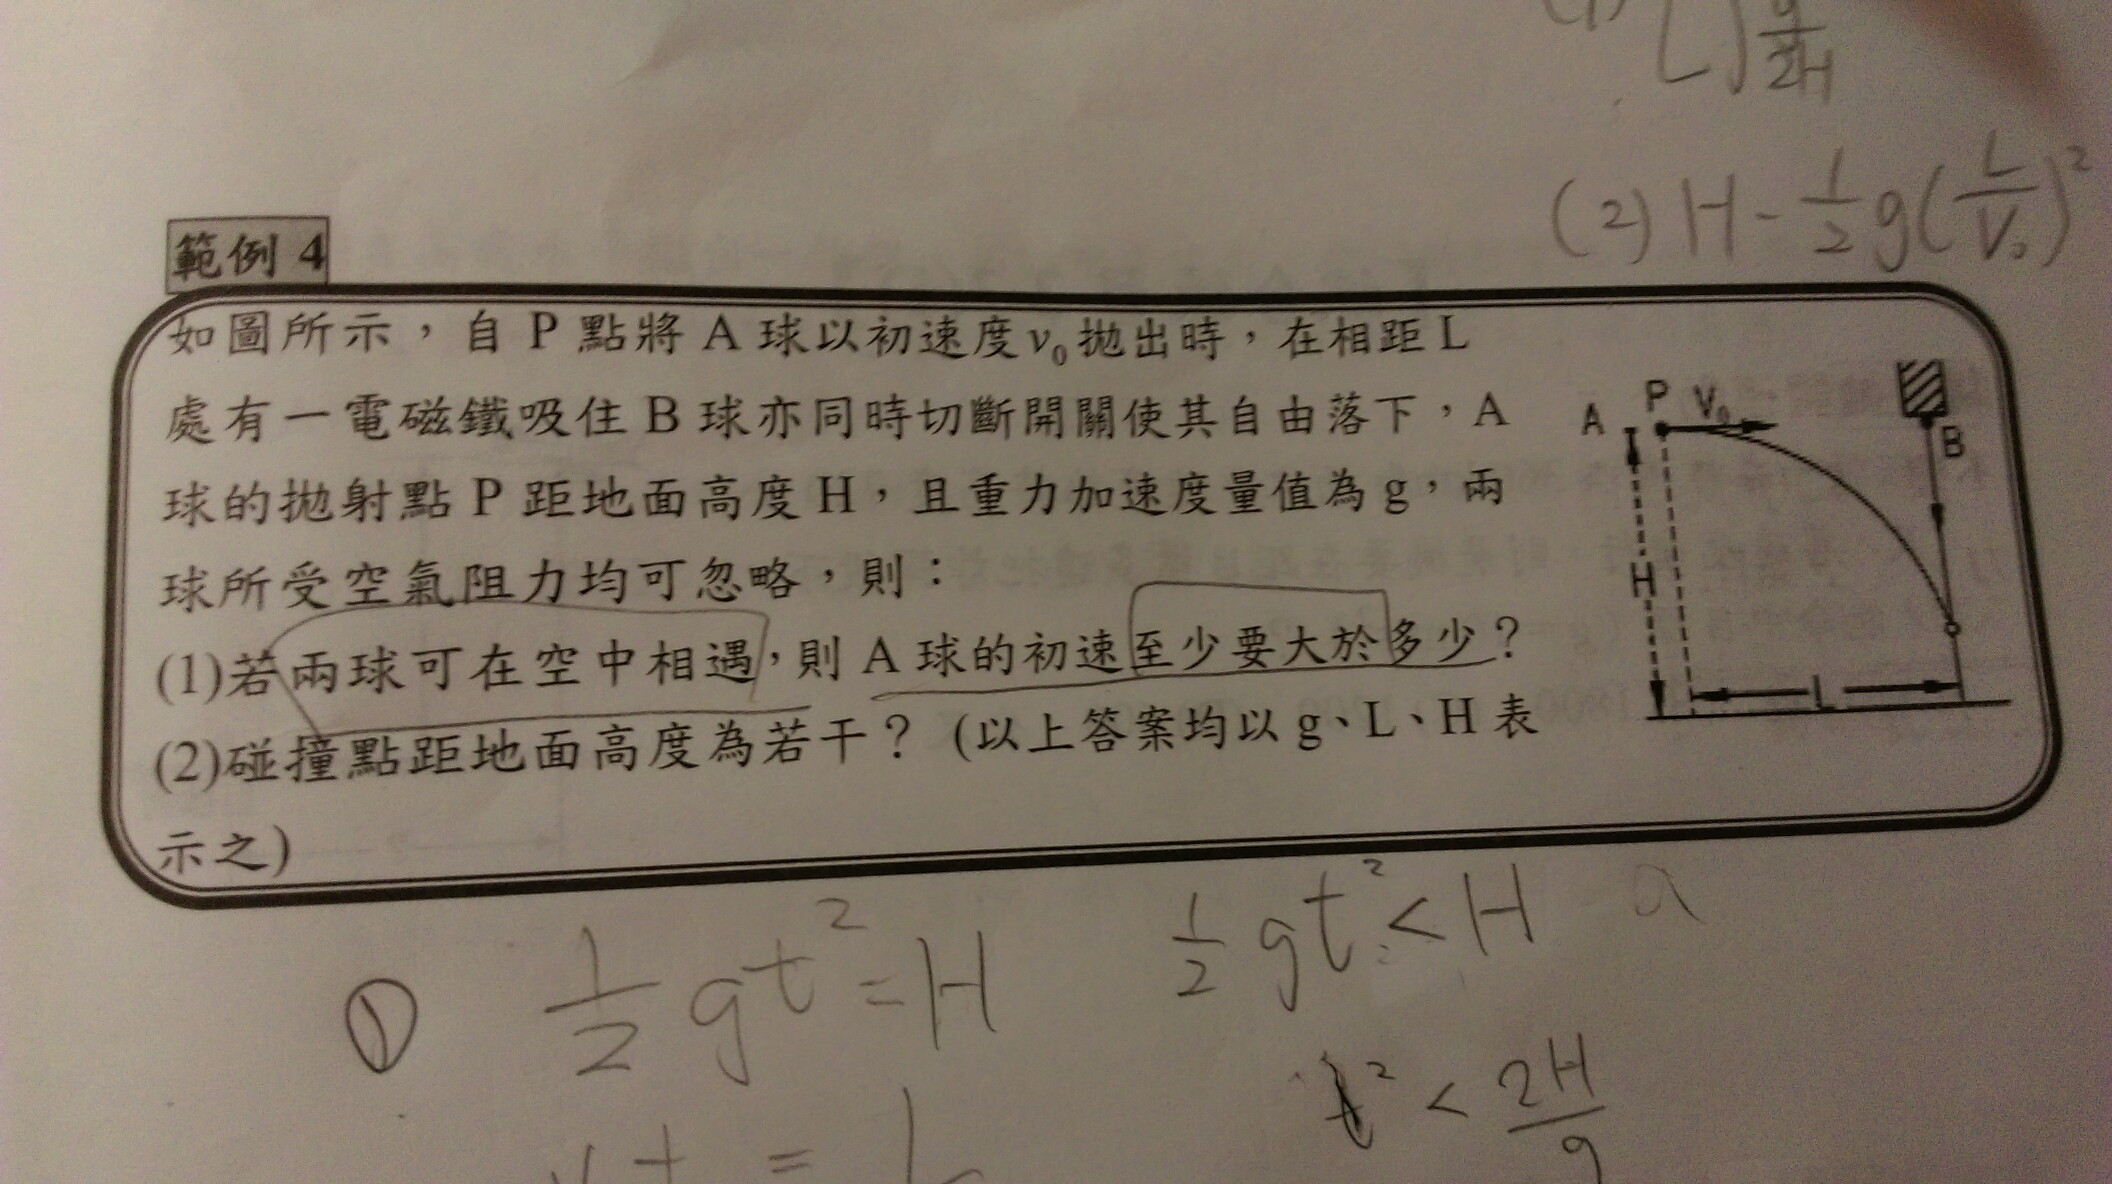 (1) L√g/2H
(2) H - 1/2 g(L/V₀)²
範例 4
如圖所示，自 P 點將 A 球以初速度v₀拋出時，在相距 L
處有一電磁鐵吸住 B 球亦同時切斷開關使其自由落下，A
球的拋射點 P 距地面高度 H，且重力加速度量值為 g，兩
球所受空氣阻力均可忽略，則：
(1)若兩球可在空中相遇，則 A 球的初速至少要大於多少？
(2)碰撞點距地面高度為若干？ (以上答案均以 g、L、H 表
示之)
A P V₀ B
H
L
① 1/2 gt² = H
1/2 gt² < H
t² < 2H/g
vt = L